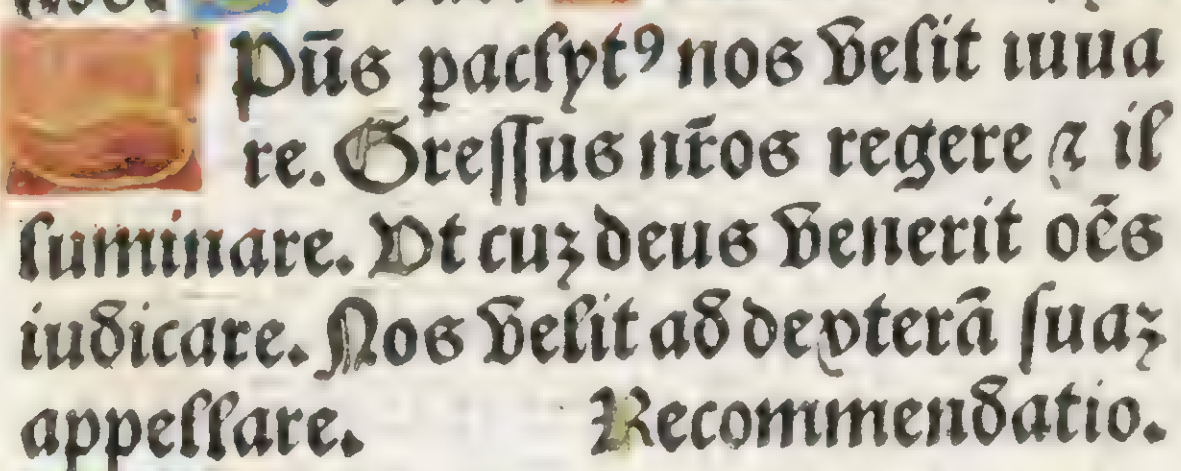 Pūs paclytꝰ nos velit iuua
re. Greſſus nr̄os regere ⁊ il
luminare. Vt cuz deus venerit oēs
iudicare. Nos velit ad dexterā ſuaz
appellare. Recommendatio.